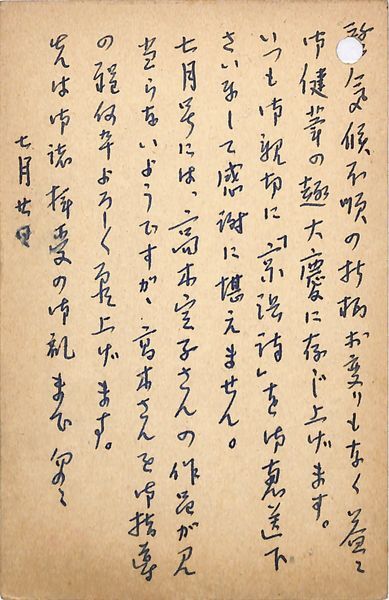 啓 気候不順の折柄お変りもなく益々
御健勝の趣大慶に存じ上げます。
いつも御親切に「詩」を御恵送下
さいまして感謝に堪えません。
七月号には、高木さんの作品が見
当らないようですが、高木さんを御指導
の程何卒よろしく上げます。
先は御拝受の御礼まで 匆々
七月廿日